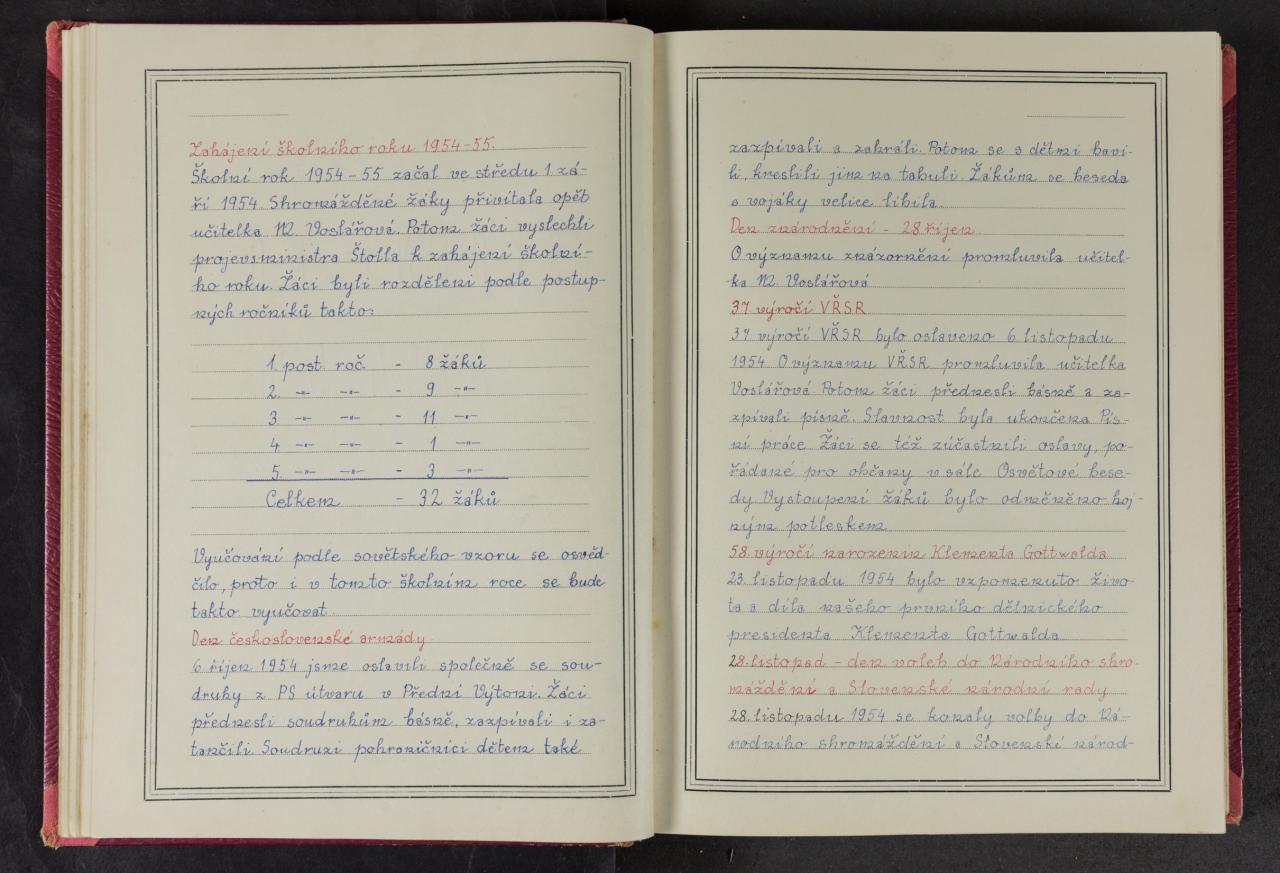 Zahájení školního roku 1954-55.
Školní rok 1954-55 začal ve středu 1. zá-
ří 1954. Shromážděné žáky přivítala opět
učitelka M. Voslářová. Potom žáci vyslechli
projev ministra Štolla k zahájení školní-
ho roku. Žáci byli rozděleni podle postup-
ných ročníků takto:
1. post. roč. - 8 žáků
2. -"- -"- - 9 -"-
3 -"- -"- - 11 -"-
4 -"- -"- - 1 -"-
5. -"- -"- - 3 -"-
Celkem - 32 žáků
Vyučování podle sovětského vzoru se osvěd-
čilo, proto i v tomto školním roce se bude
takto vyučovat.
Den československé armády
6. říjen 1954 jsme oslavili společně se sou-
druhy z PS útvaru v Přední Výtoni. Žáci
přednesli soudruhům básně, zazpívali i za-
tančili. Soudruzi pohraničníci dětem také
zazpívali a zahráli. Potom se s dětmi bavi-
li, kreslili jim na tabuli. Žákům se beseda
s vojáky velice líbila.
Den znárodnění - 28 říjen
O významu znázornění promluvila učitel-
ka M. Voslářová
37. výročí VŘSR
37 výročí VŘSR bylo oslaveno 6. listopadu
1954. O významu VŘSR promluvila učitelka
Voslářová. Potom žáci přednesli básně a za-
zpívali písně. Slavnost byla ukončena Pís-
ní práce. Žáci se též zúčastnili oslavy, po-
řádané pro občany v sále Osvětové bese-
dy. Vystoupení žáků bylo odměněno hoj-
ným potleskem.
58. výročí narozenin Klementa Gottwalda
23. listopadu 1954 bylo vzpomenuto živo-
ta a díla našeho prvního dělnického
presidenta Klementa Gottwalda
28. listopad - den voleb do Národního shro-
máždění a Slovenské národní rady
28. listopadu 1954 se konaly volby do Ná-
rodního shromáždění a Slovenské národ-